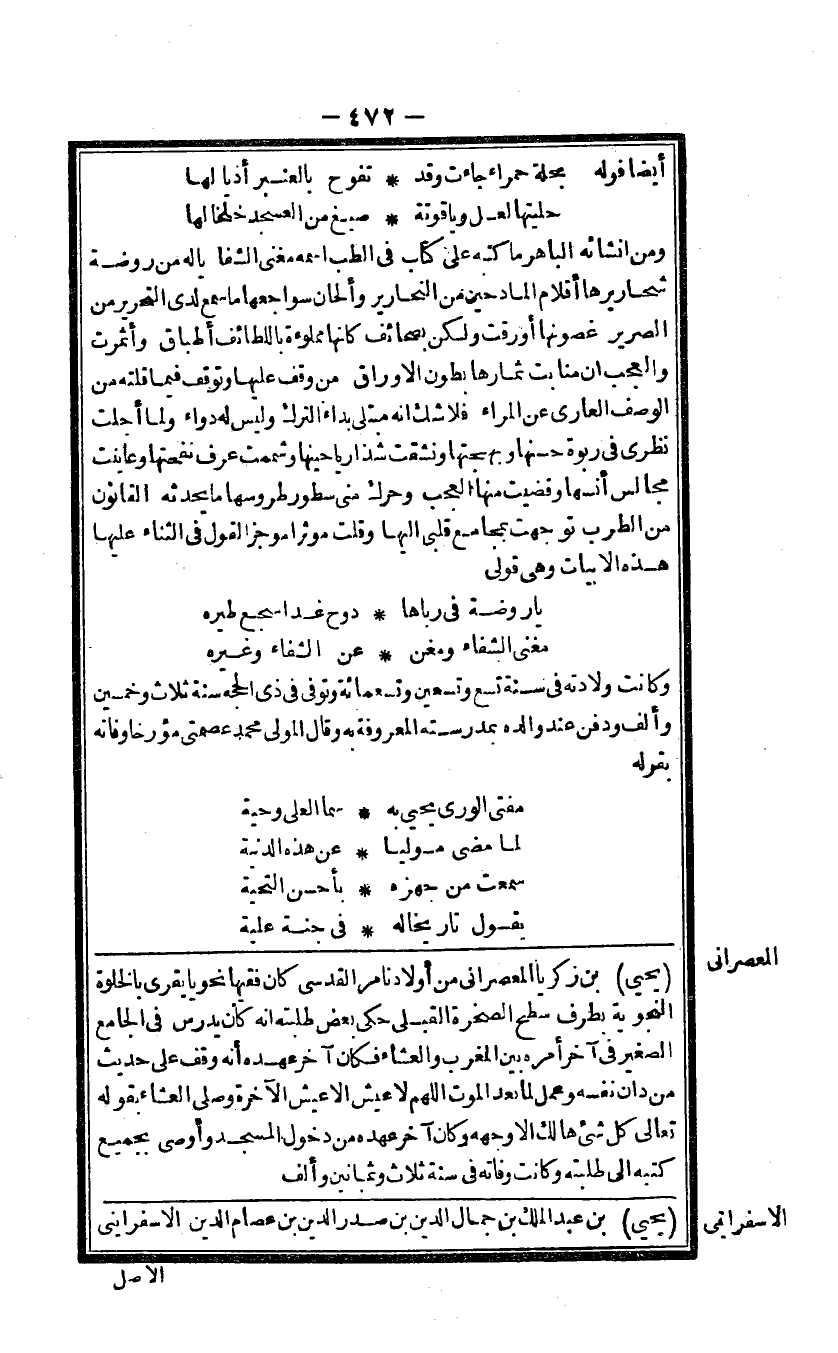 — ٤٧٢ —
أيضا قوله بحلة حمراء جاءت وقد * تفوح بالعنبر أذيالها
حليتها لعل وياقوتة * صيغ من العسجد خلخالها
ومن انشائه الباهر ما كتبه على كتاب فى الطب اسمه مغنى الشفا ياله من روضة
شحاريرها أقلام المادحين من النحارير وألحان سواجعها ما سمع لدى التحرير من
الصرير غصونها أورقت ولكن بصحائف كانها مملوءة باللطائف أطباق وأثمرت
والعجب ان منابت ثمارها بطون الاوراق من وقف عليها وتوقف فيما قلته من
الوصف العارى عن المراء فلاشك انه مبتلى بداء الترك وليس له دواء ولما أجلت
نظرى فى ربوة حسنها وبهجتها ونشقت شذار ياحينها وشممت عرف نفحتها وعاينت
مجالس أنسها وقضيت منها العجب وحرك منى سطور طروسها ما يحدثه القانون
من الطرب توجهت بمجامع قلبى اليها وقلت موثرا موجز القول فى الثناء عليها
هذه الابيات وهى قولى
ياروضة فى رباها * دوح غدا سجع طيره
مغنى الشفاء ومغن * عن الشفاء وغيره
وكانت ولادته فى سنة تسع وتسعين وتسعمائة وتوفى فى ذى الحجه سنة ثلاث وخمسين
وألف ودفن عند والده بمدرسته المعروفة به وقال المولى محمد عصمتى مؤرخا وفاته
بقوله
مفتى الورى يحيي به * سما العلى وحية
لما مضى موليا * عن هذه الدنية
سمعت من جهزه * بأحسن التحية
يقول تاريخاله * فى جنة علية
المعصرانى
(يحيي) بن زكريا المعصرانى من أولاد نامر القدسى كان فقيها نحويا يقرى بالخلوة
النحوية بطرف سطح الصخرة القبلى حكى بعض طلبته انه كان يدرس فى الجامع
الصغير فى آخر أمره بين المغرب والعشاء فكان آخر عهده أنه وقف على حديث
من دان نفسه وعمل لما بعد الموت اللهم لا عيش الا عيش الآخرة وصلى العشاء بقوله
تعالى كل شئ هالك الا وجهه وكان آخر عهده من دخول المسجد وأوصى بجميع
كتبه الى طلبته وكانت وفاته فى سنة ثلاث وثمانين وألف
الاسفراينى
(يحيي) بن عبد الملك بن جمال الدين بن صدر الدين بن عصام الدين الاسفراينى
الاصل